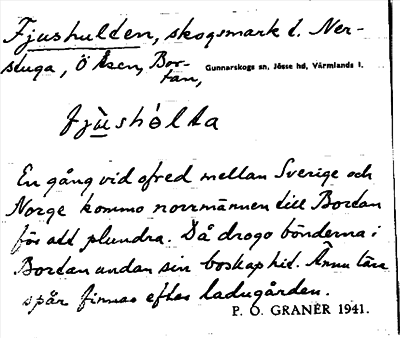 Fjushulten, skogsmark t. Ner-
stuga, Ö Åsen, Bor-
tan,
Gunnarskogs sn, Jösse hd, Värmlands l.
fjùshólta
En gång vid ofred mellan Sverige och
Norge kommo norrmännen till Bortan
för att plundra. Då drogo bönderna i
Bortan undan sin boskap hit. Ännu lära
spår finnas efter ladugården.
P. O. GRANÉR 1941.